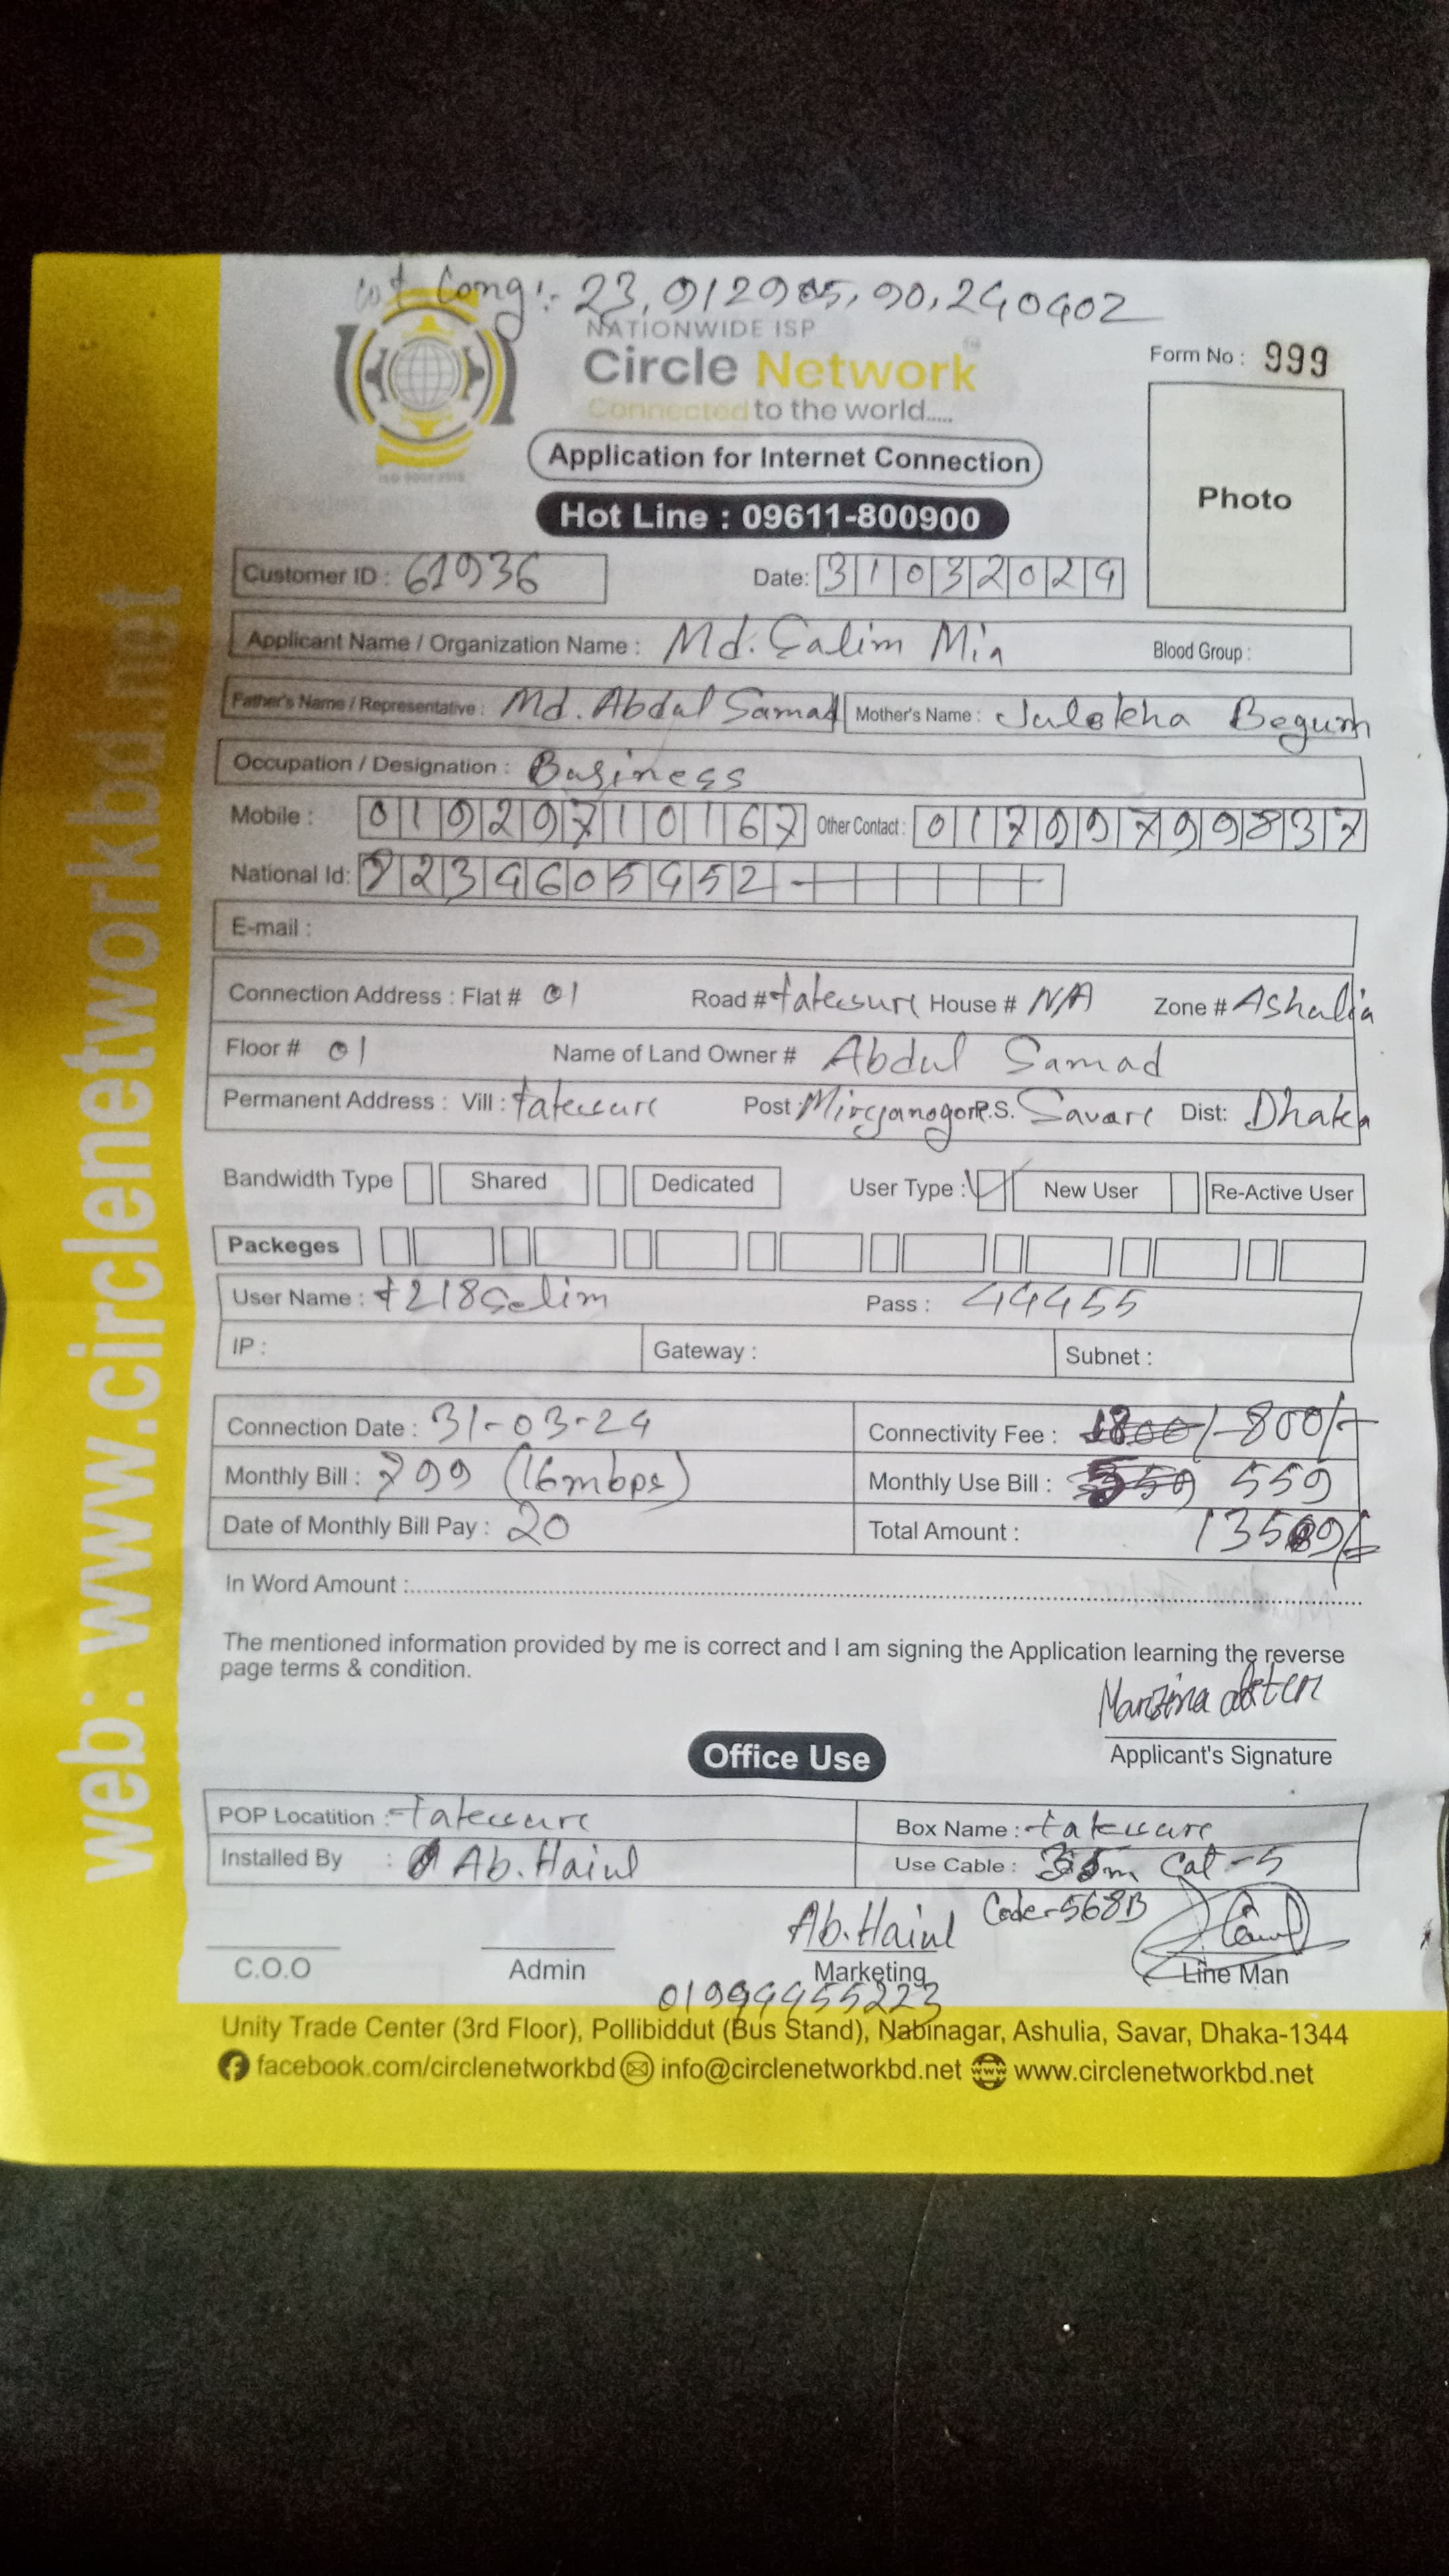 Long:- 23.912985, 90.240402
NATIONWIDE ISP
Circle Network
Connected to the world.....
Form No : 999
Application for Internet Connection
Photo
Hot Line : 09611-800900
Customer ID : 61936 Date: 31032024
Applicant Name / Organization Name : Md. Salim Mia Blood Group :
Father's Name / Representative : Md. Abdul Samad Mother's Name : Julekha Begum
Occupation / Designation : Business
Mobile : 01929710167 Other Contact : 01799799837
National Id: 7234605452
E-mail :
Connection Address : Flat # 01 Road # House # N/A Zone # Ashulia
Floor # 01 Name of Land Owner # Abdul Samad
Permanent Address : Vill : Post : P.S. Savar Dist: Dhaka
Bandwidth Type Shared Dedicated User Type : New User Re-Active User
Packeges
User Name : t218Salim Pass : 44455
IP : Gateway : Subnet :
Connection Date : 31-03-24 Connectivity Fee : 1800/- 800/-
Monthly Bill : 799 (16mbps) Monthly Use Bill : 559 559
Date of Monthly Bill Pay : 20 Total Amount : 1359/-
In Word Amount :
The mentioned information provided by me is correct and I am signing the Application learning the reverse
page terms & condition.
Applicant's Signature
Office Use
POP Locatition : Box Name :
Installed By : Ab. Hainl Use Cable : Cat-5
Code-568B
Ab. Hainl
C.O.O Admin Marketing Line Man
01994455223
Unity Trade Center (3rd Floor), Pollibiddut (Bus Stand), Nabinagar, Ashulia, Savar, Dhaka-1344
facebook.com/circlenetworkbd info@circlenetworkbd.net www.circlenetworkbd.net
web: www.circlenetworkbd.net